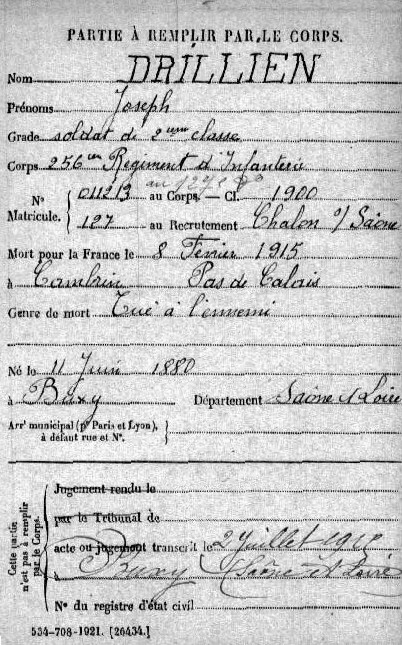 PARTIE À REMPLIR PAR LE CORPS.
Nom DRILLIEN
Prénoms Joseph
Grade soldat de 2eme classe
Corps 256eme Régiment d'Infanterie
No 011213 au Corps. — Cl. 1900
Matricule. 127 au Recrutement Chalon s/ Saône
Mort pour la France le 8 Février 1915
à Cambrin Pas de Calais
Genre de mort Tué à l'ennemi
Né le 11 Juin 1880
à Buxy Département Saône et Loire
Arrt municipal (pr Paris et Lyon),
à défaut rue et No.
Cette partie n'est pas à remplir par le Corps.
Jugement rendu le
par le Tribunal de
acte ou jugement transcrit le 2 Juillet
à Buxy (Saône et Loire)
No du registre d'état civil
534-708-1921. [26434.]